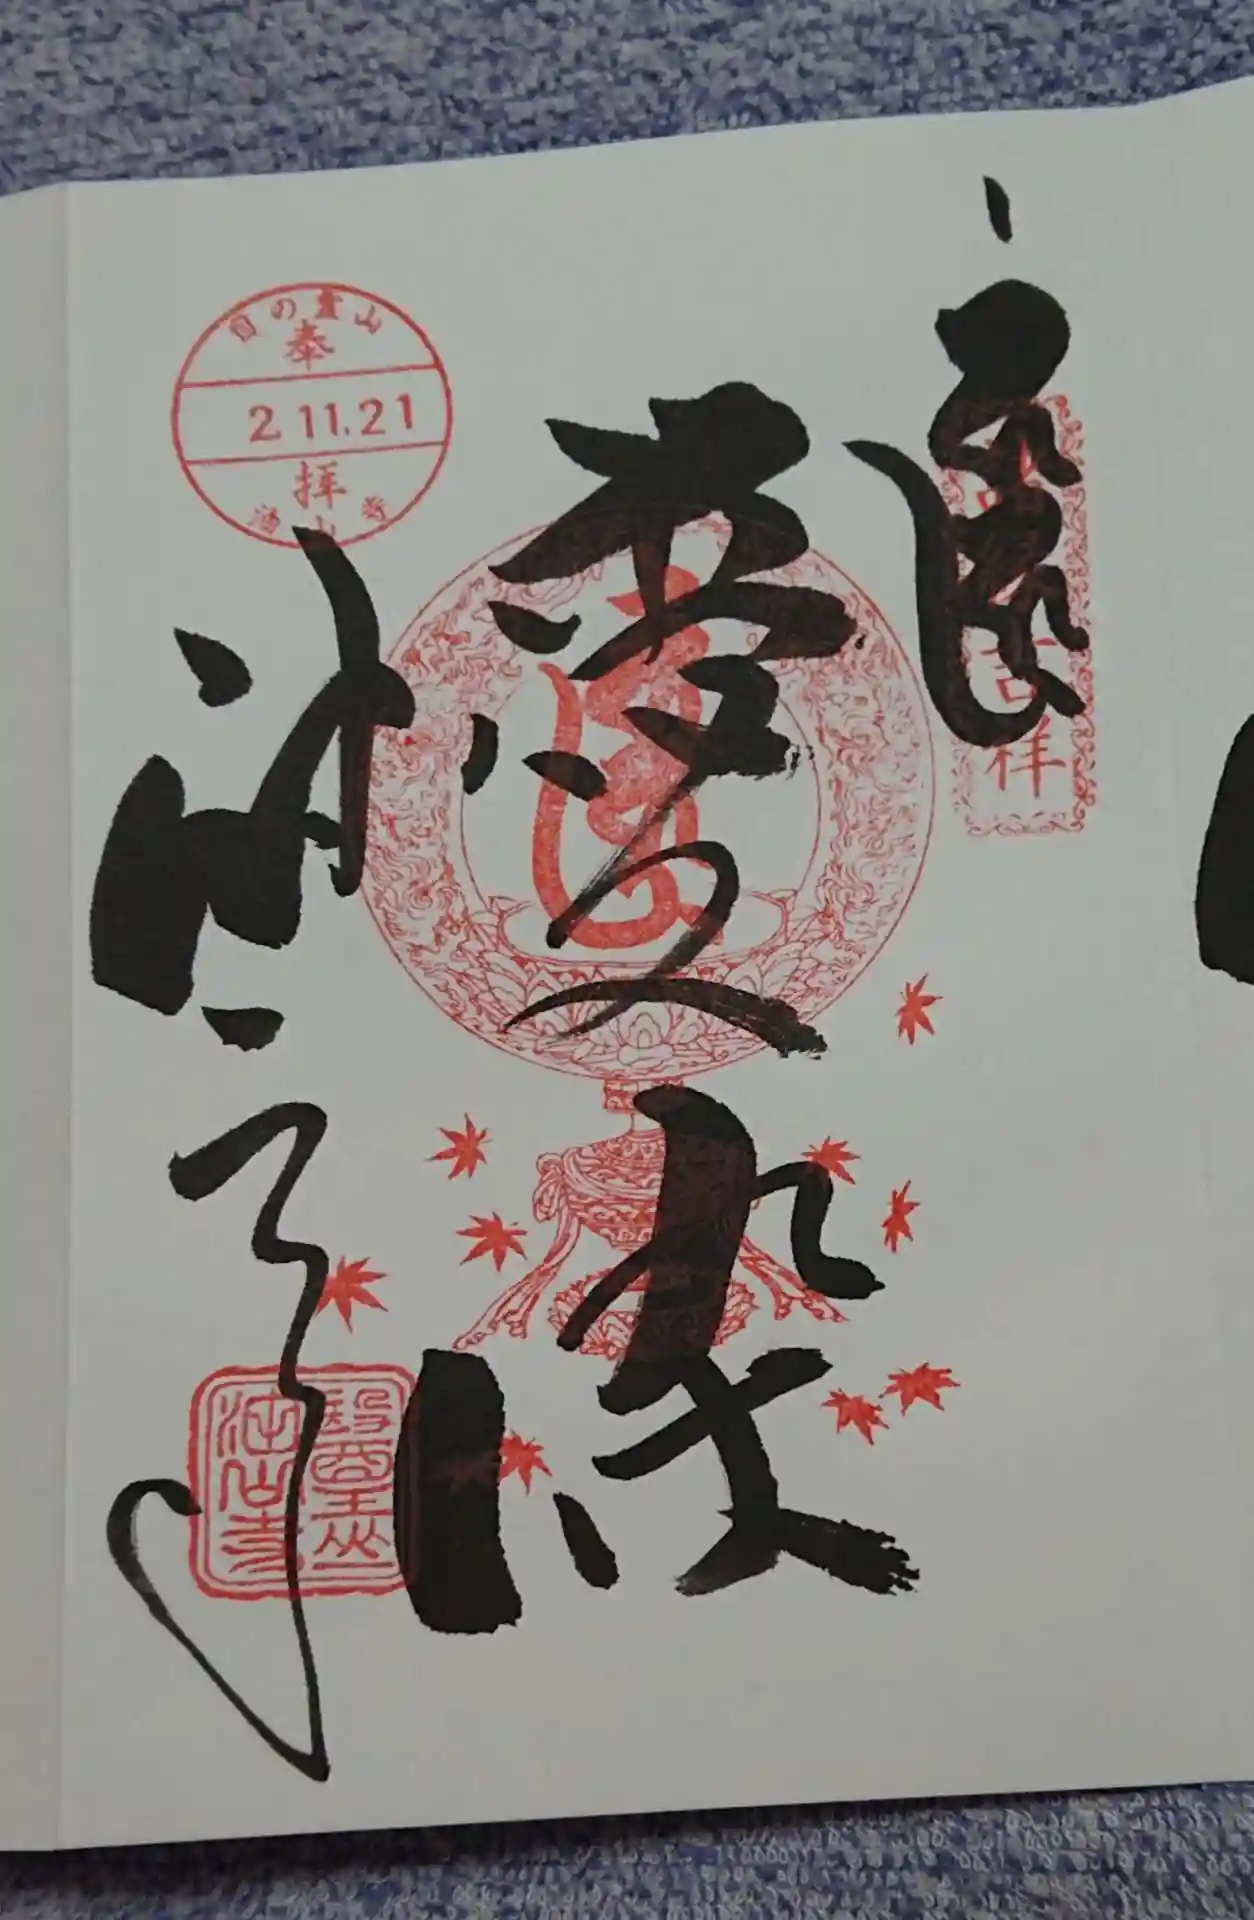 吉祥
愛染
目の霊山
奉
2.11.21
拝
油山寺
油山寺
醫王山
油山寺